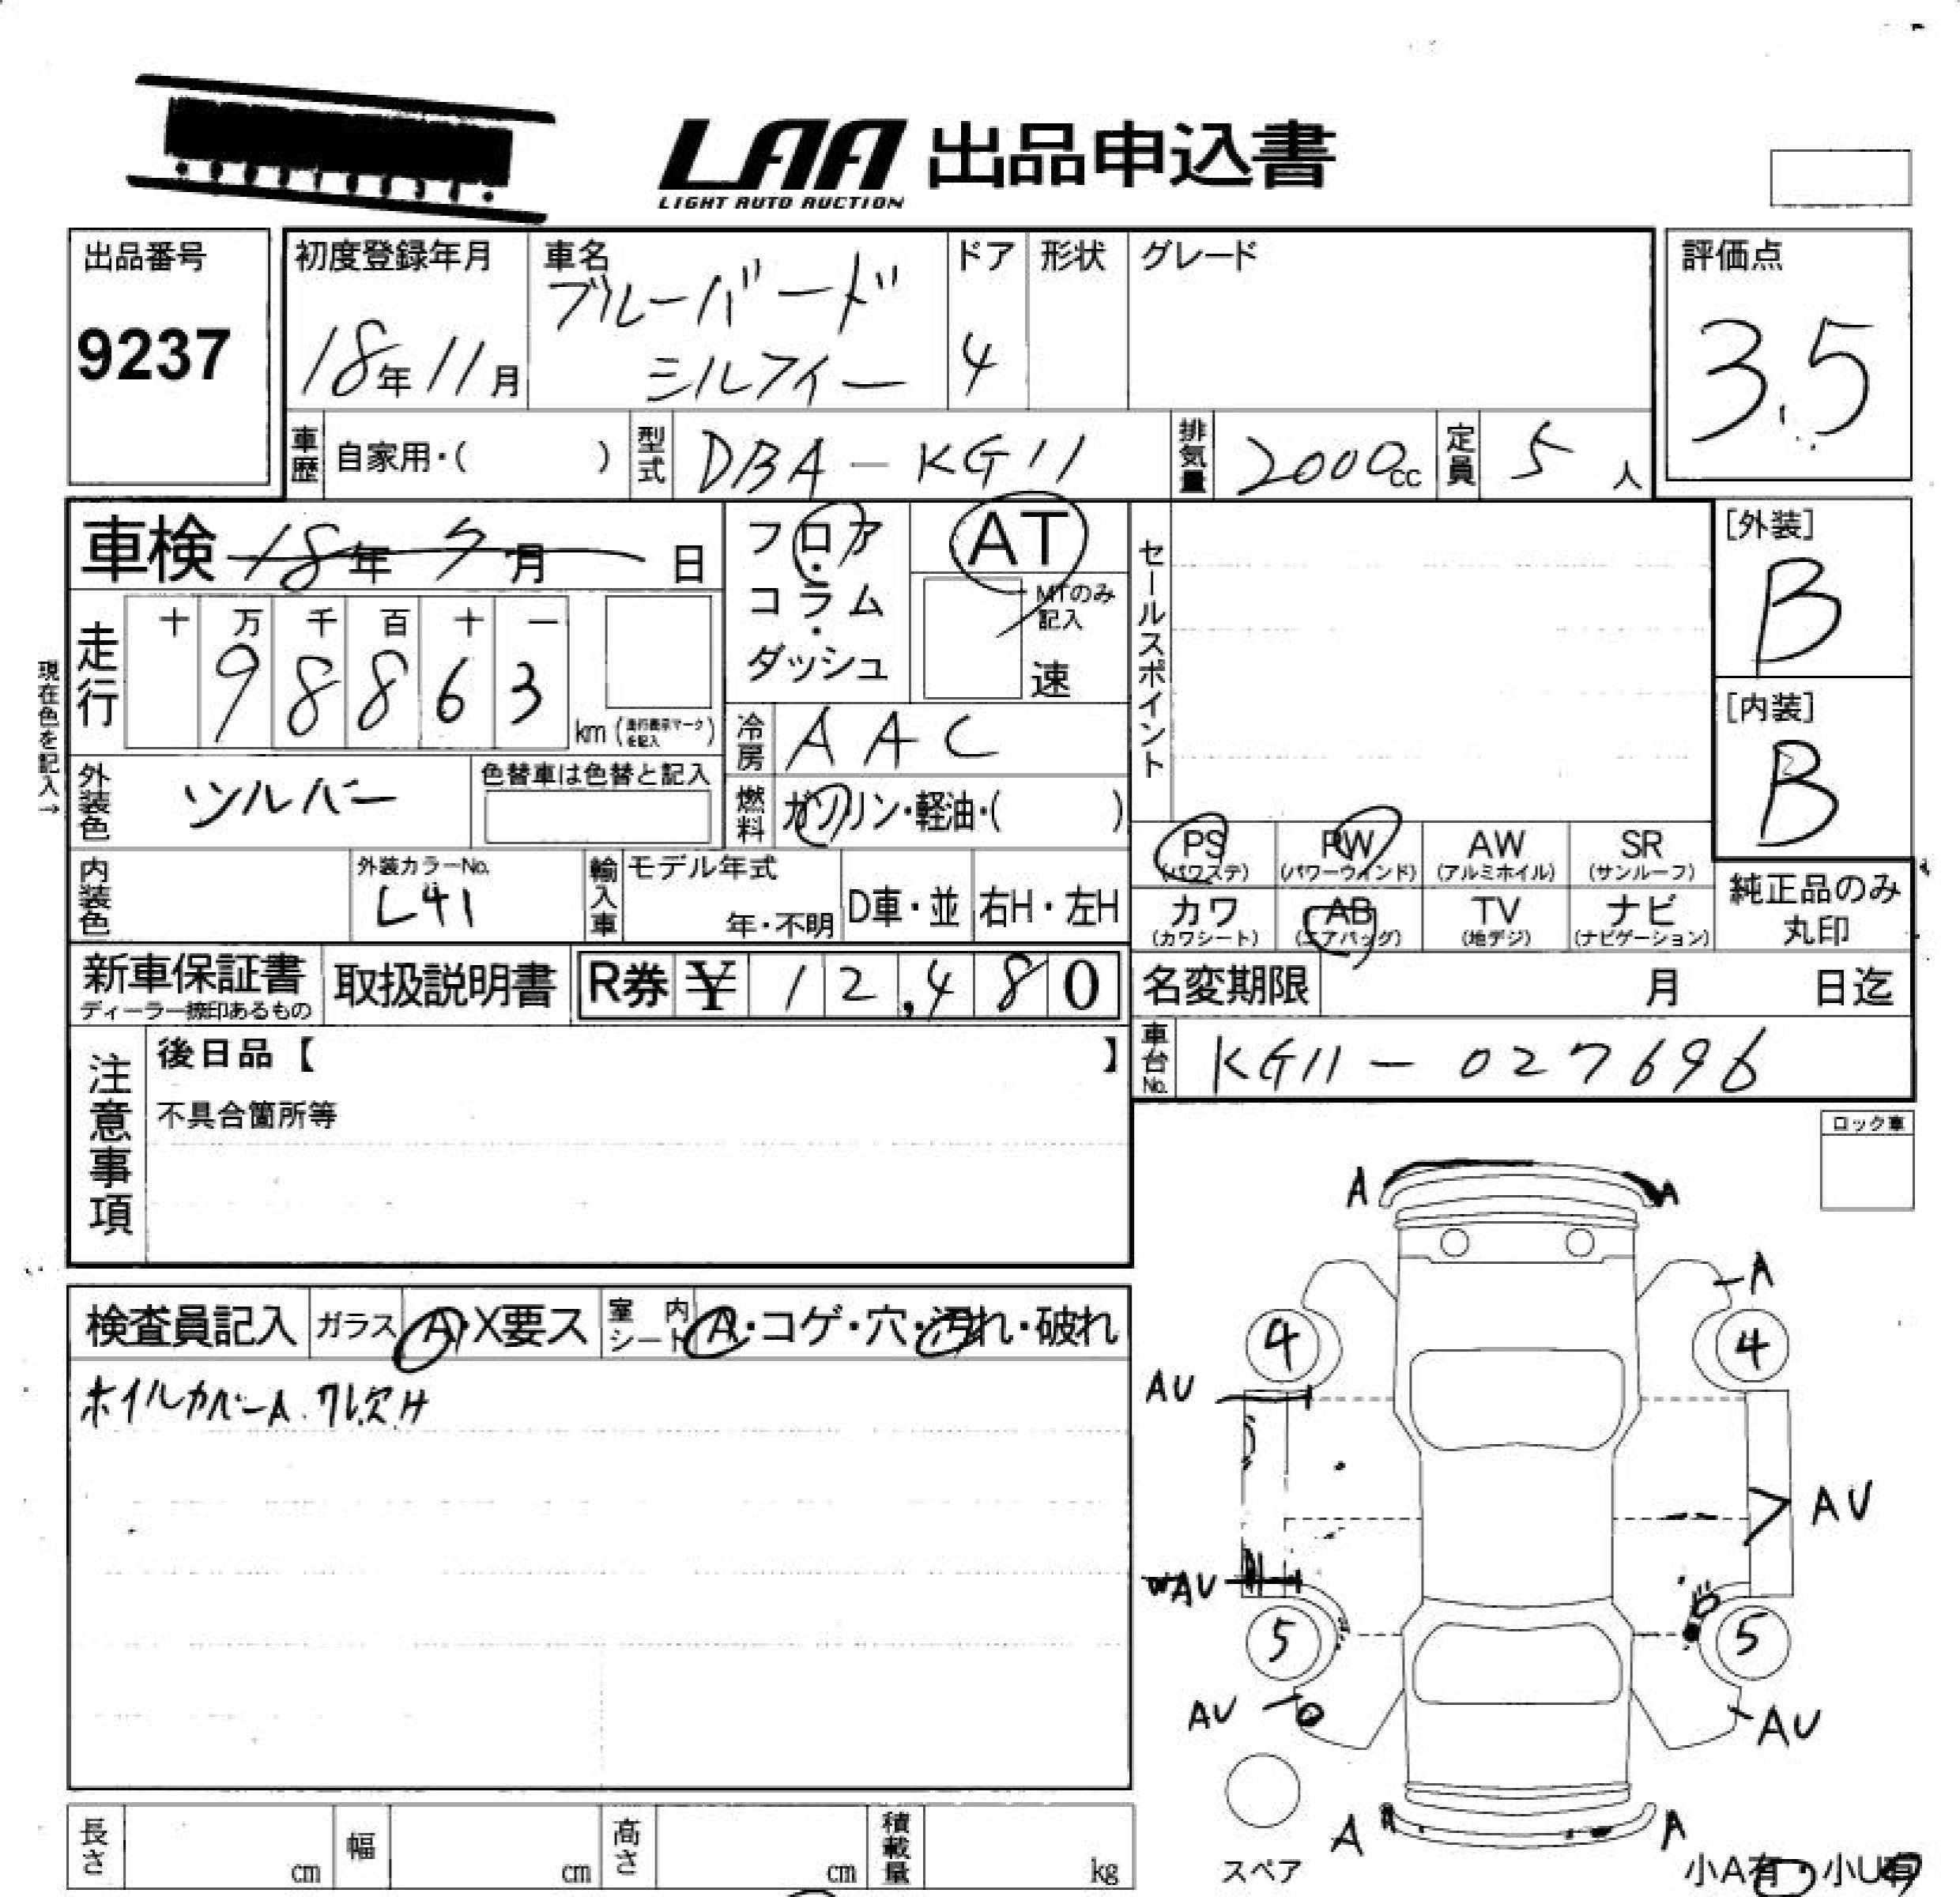 LAA 出品申込書
LIGHT AUTO AUCTION
出品番号
9237
初度登録年月
18年11月
車名
ブルーバード
シルフィー
ドア
4
形状
グレード
評価点
3.5
車歴
自家用・( )
型式
DBA-KG11
排気量
2000cc
定員
5人
車検 18年 月 日
フロア・コラム・ダッシュ
AT
MTのみ記入
速
セールスポイント
[外装]
B
[内装]
B
現在色を記入→
走行
十 万 千 百 十 一
9 8 8 6 3
km (走行表示マークを記入)
冷房
AAC
外装色
シルバー
色替車は色替と記入
燃料
ガソリン・軽油・( )
内装色
外装カラーNo.
L41
輸入車
モデル年式
年・不明
D車・並
右H・左H
PS (パワステ)
PW (パワーウインド)
AW (アルミホイル)
SR (サンルーフ)
カワ (カワシート)
AB (エアバッグ)
TV (地デジ)
ナビ (ナビゲーション)
純正品のみ
丸印
新車保証書
ディーラー捺印あるもの
取扱説明書
R券 ¥ 12,480
名変期限 月 日迄
車台No.
KG11-027696
注意事項
後日品【 】
不具合箇所等
ロック車
検査員記入
ガラス A・X要ス
室内シート A・コゲ・穴・汚れ・破れ
ホイルカバーA.ワレ欠け
A
A
A
4
4
AU
AU
AU
5
5
AU
AU
A
A
スペア
小A有・小U有
長さ cm
幅 cm
高さ cm
積載量 kg